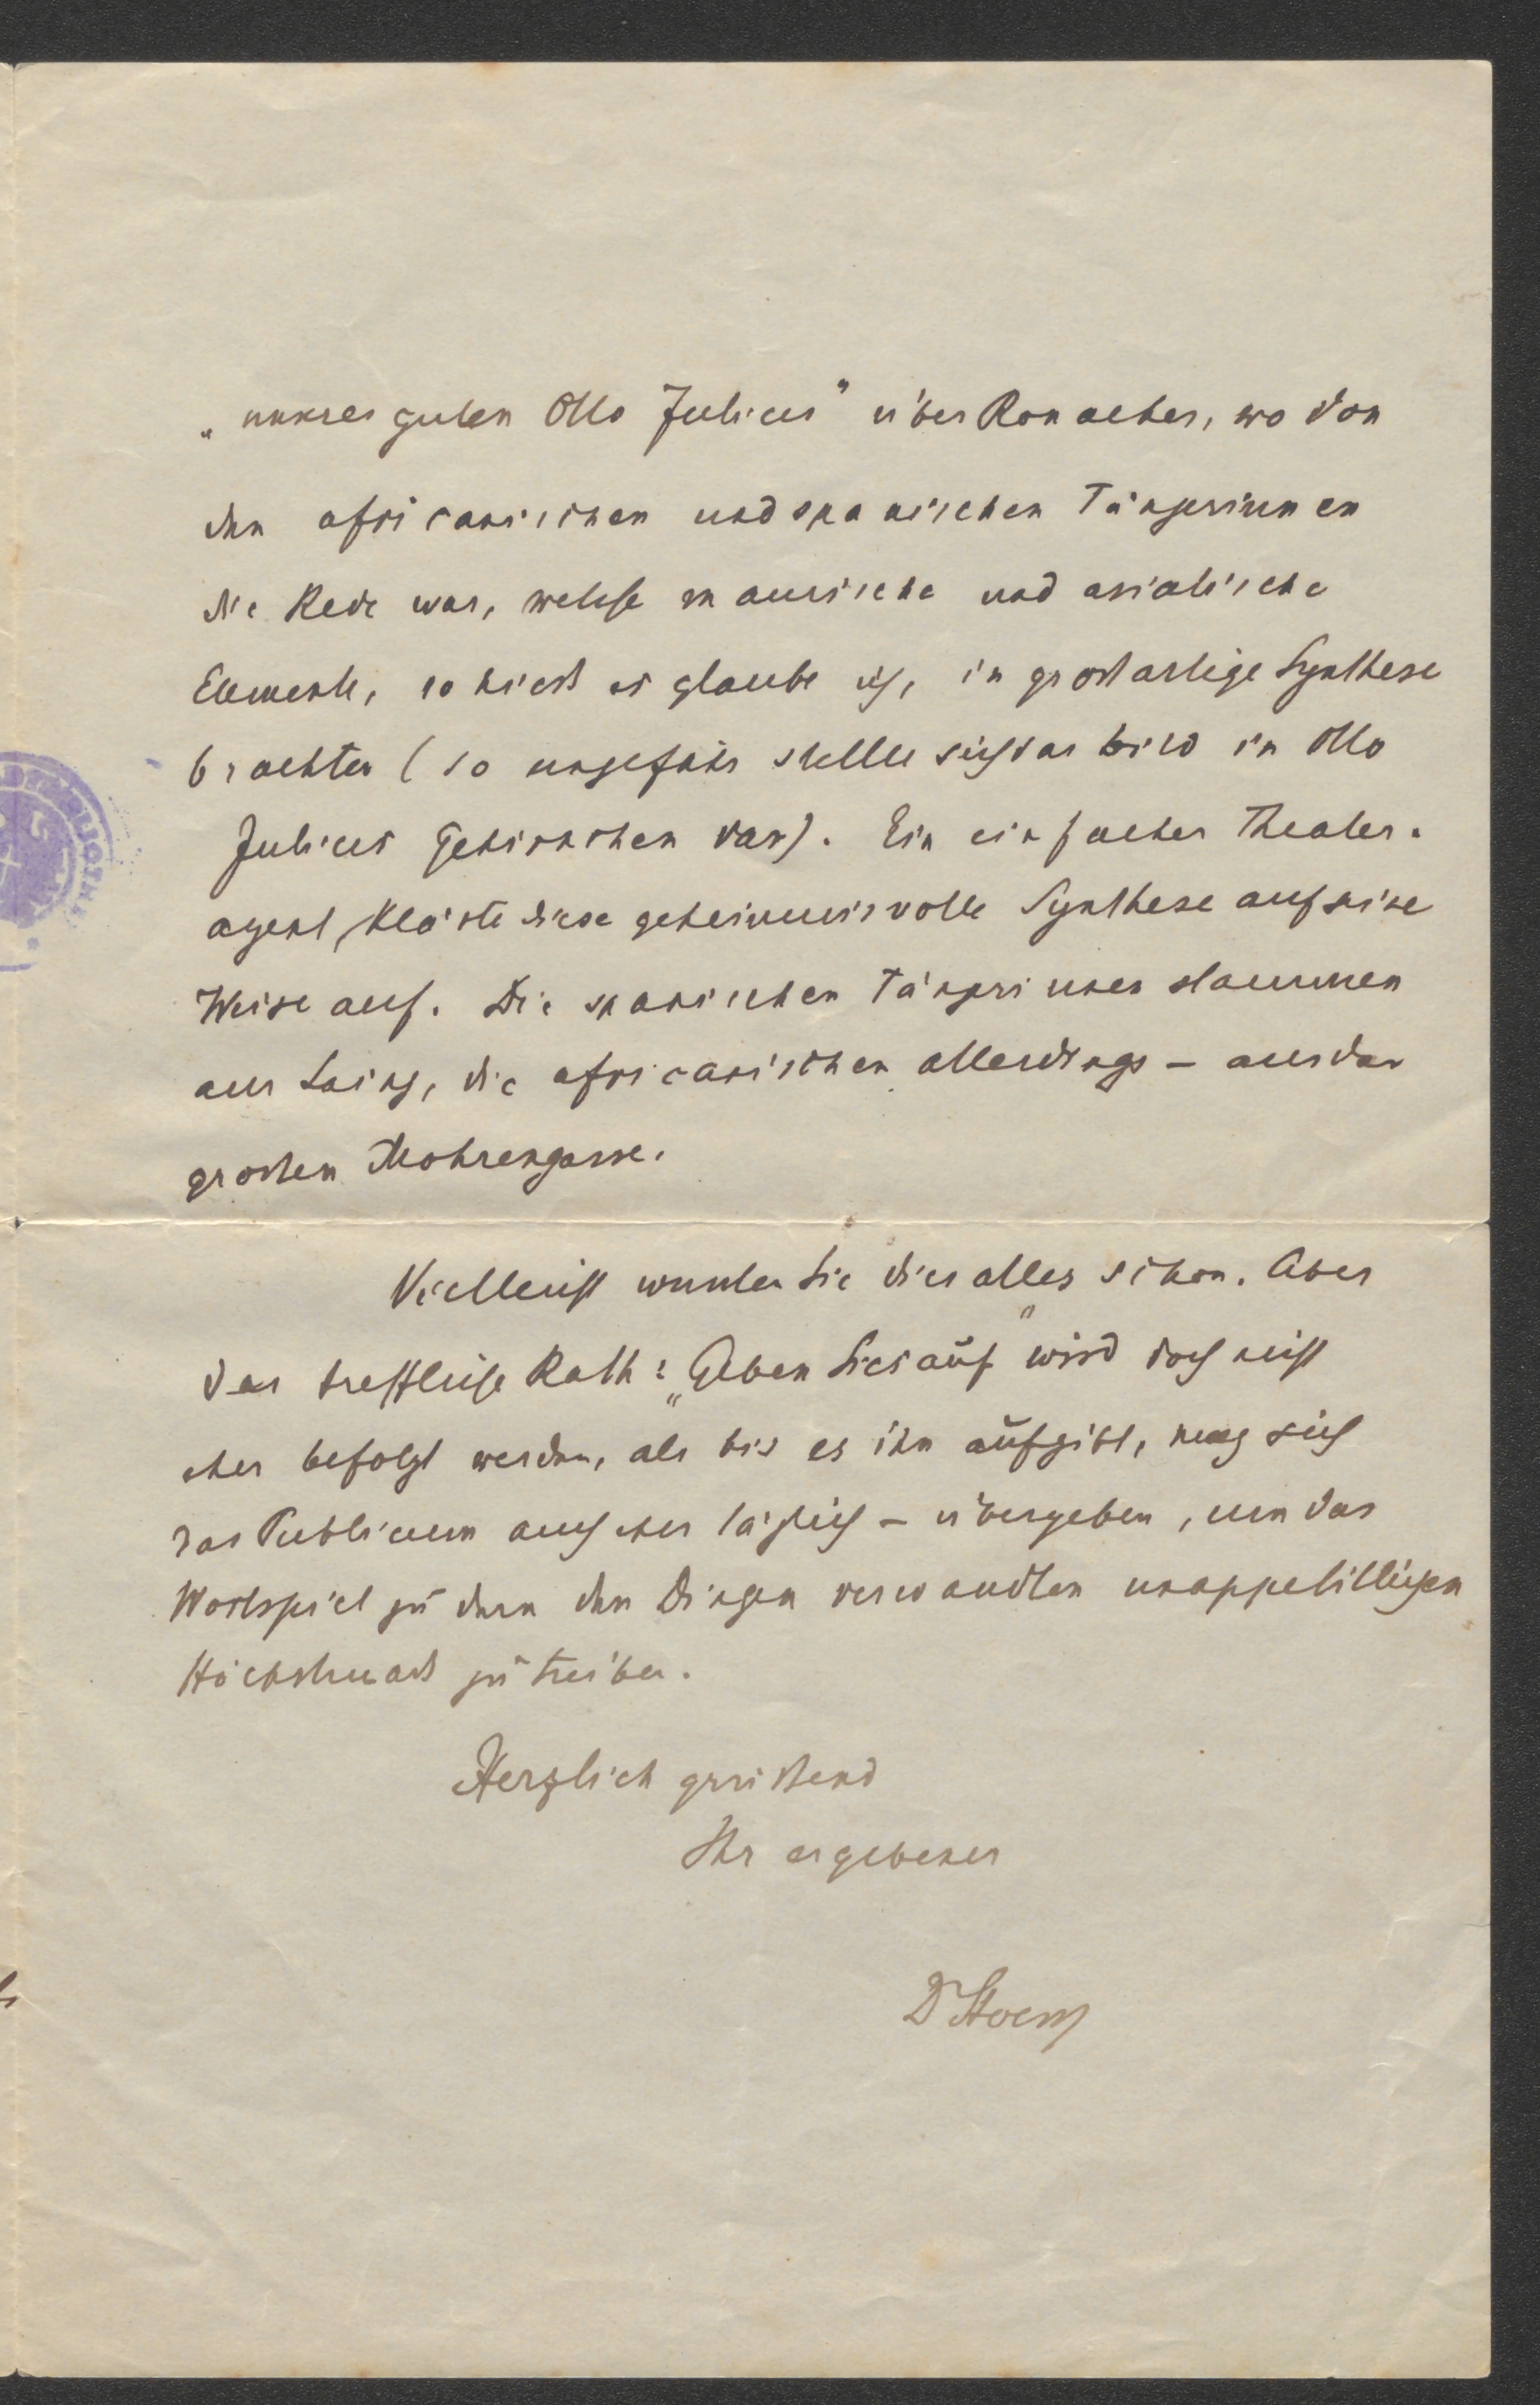 „unsres guten Otto Julius" über Ronacher, wo von
den africanischen und spanischen Tänzerinnen
die Rede war, welche maurische und asiatische
Elemente, so hieß es glaube ich, in großartige Synthese
brachten (so ungefähr stelle sich das Bild in Otto
Julius Gehirnchen dar). Ein einfacher Theater-
agent klärte diese geheimnisvolle Synthese auf seine
Weise auf. Die spanischen Tänzerinnen stammen
aus Lainz, die africanischen allerdings – aus der
großen Mohrengasse.
Vielleicht wussten Sie dies alles schon. Aber
der treffliche Rath: „Geben Sies auf" wird doch nicht
eher befolgt werden, als bis es ihn aufgibt, mag sich
das Publicum auch eher täglich – übergeben, um das
Wortspiel zu dem den Dingen verwandten unappetitlichen
Höchstmaß zu treiben.
Herzlich grüßend
Ihr ergebener